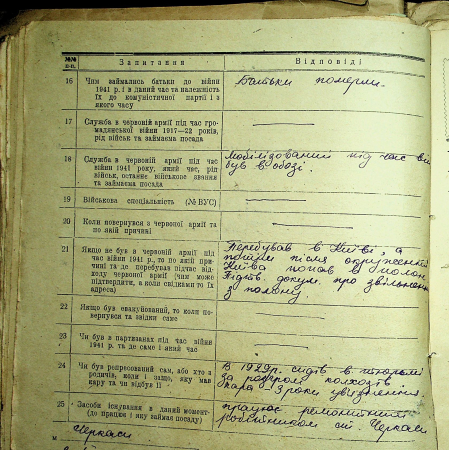 №№ п.п.
Запитання
Відповіді
16
Чим займались батьки до війни
1941 р. і в даний час та належність
їх до комуністичної партії і з
якого часу
Батьки померли.
17
Служба в червоній армії під час гро-
мадянської війни 1917—22 років,
рід військ та займаєма посада
18
Служба в червоній армії під час
війни 1941 року, який час, рід
військ, останнє військове звання
та займаєма посада
Мобілізований під час ві
був в обозі.
19
Військова спеціальність (№ ВУС)
20
Коли повернувся з червоної армії та
по якій причині
21
Якщо не був в червоній армії під
час війни 1941 р., то по якій при-
чині та де перебував підчас від-
ходу червоної армії (чим може
підтвердити, а коли свідками то їх
адреса)
Перебував в Києві, а
потім після окруження
Києва попав в полон
докум. про звільнення
з полону.
22
Якщо був евакуйований, то коли по-
вернувся та звідки саме
23
Чи був в партизанах під час війни
1941 р. та де саме і який час
24
Чи був репресований сам, або хто з
родичів, коли і защо, яку мав
кару та чи відбув її
В 1929р. сидів в тюрьмі
за розгром колхозів
кара - 3 роки увязнення
25
Засоби існування в даний момент
(де працює і яку займає посаду)
працює ремонтним
робітником ст. Черкаси
м
Черкаси